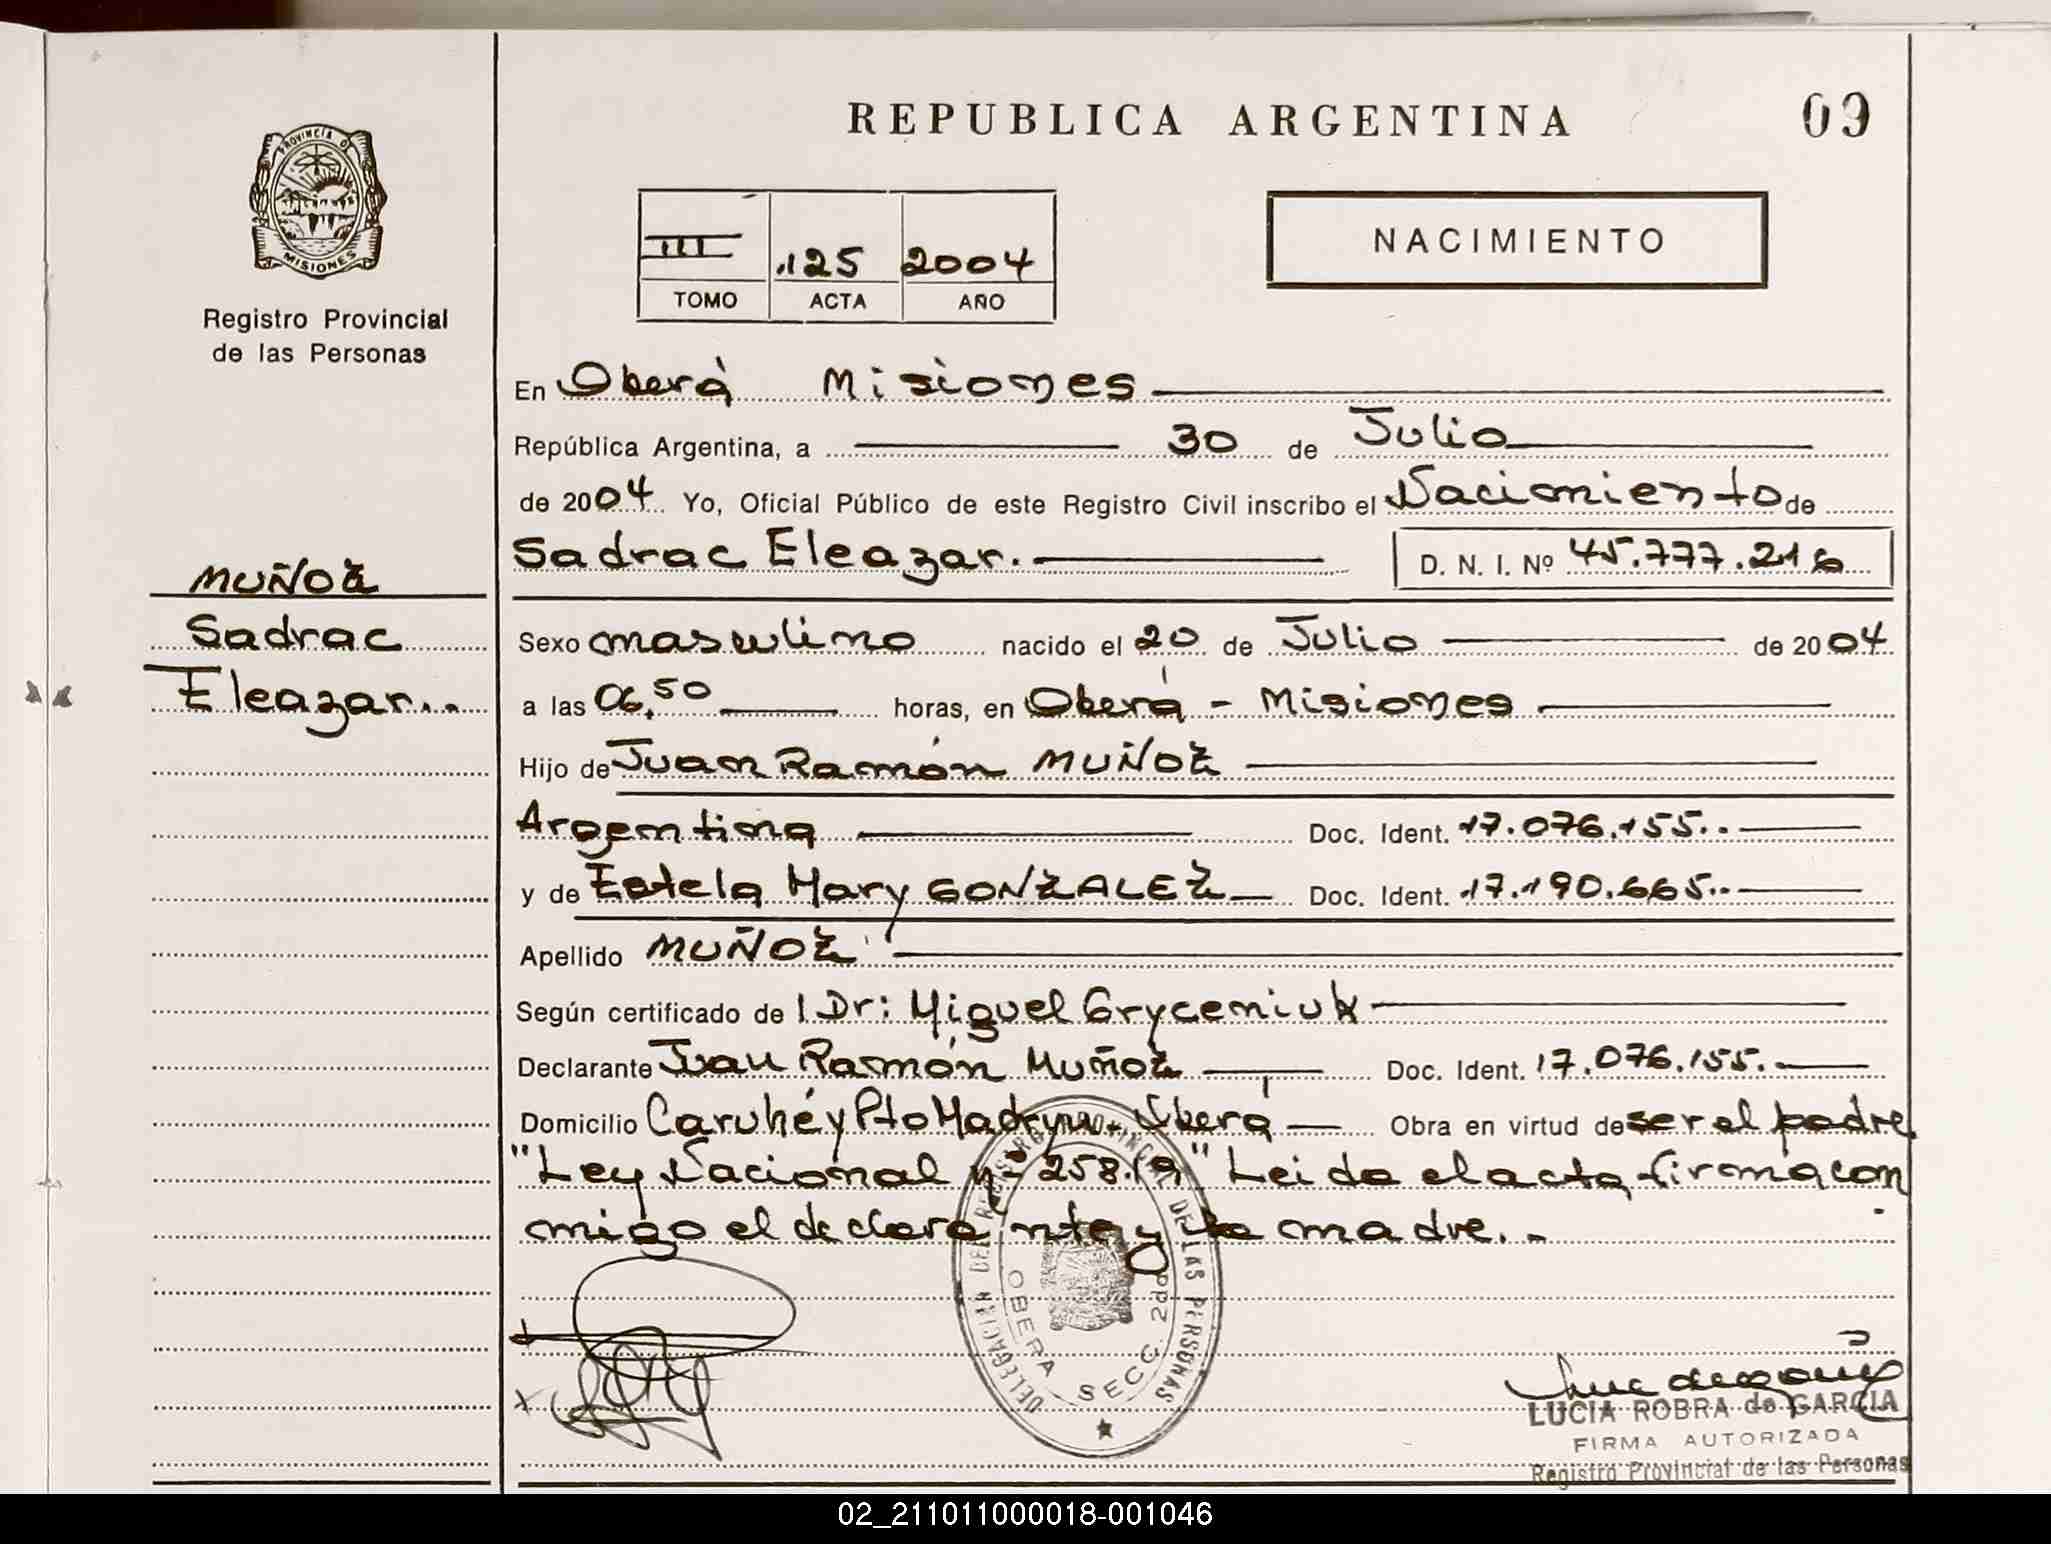 REPUBLICA ARGENTINA
09
PROVINCIA DE
MISIONES
Registro Provincial
de las Personas
III 125 2004
TOMO ACTA AÑO
NACIMIENTO
En Oberá Misiones
República Argentina, a 30 de Julio
de 2004 Yo, Oficial Público de este Registro Civil inscribo el Nacimiento de
Sadrac Eleazar. D. N. I. Nº 45.777.216
MUÑOZ
Sadrac
Eleazar..
Sexo masculino nacido el 20 de Julio de 2004
a las 06,50 horas, en Oberá - Misiones
Hijo de Juan Ramón MUÑOZ
Argentina Doc. Ident. 17.076.155..
y de Estela Mary GONZALEZ Doc. Ident. 17.190.665..
Apellido MUÑOZ
Según certificado de Dr: Miguel Gryceniuk
Declarante Juan Ramón Muñoz Doc. Ident. 17.076.155.
Domicilio Caruhé y Pto Madryn. Oberá Obra en virtud de ser el padre
"Ley Nacional nº 258.19" Leida el acta, firma con
migo el declarante y la madre..
DELEGACION DEL REGISTRO PROVINCIAL DE LAS PERSONAS
OBERA SECC. 2da
LUCIA ROBRA de GARCIA
FIRMA AUTORIZADA
Registro Provincial de las Personas
02_211011000018-001046